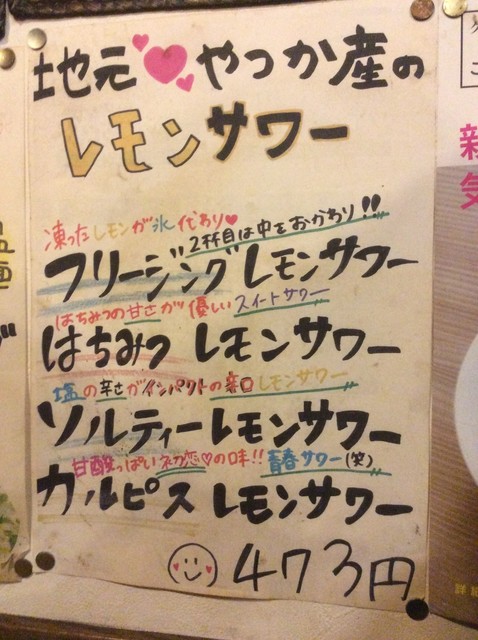 地元♥やつか産の
レモンサワー
凍ったレモンが氷代わり♥
2杯目は中をおかわり!!
フリージングレモンサワー
はちみつの甘さが優しいスイートサワー
はちみつレモンサワー
塩の辛さがインパクトの辛口レモンサワー
ソルティーレモンサワー
甘酸っぱい初恋♡の味!!青春サワー(笑)
カルピスレモンサワー
473円
新
気